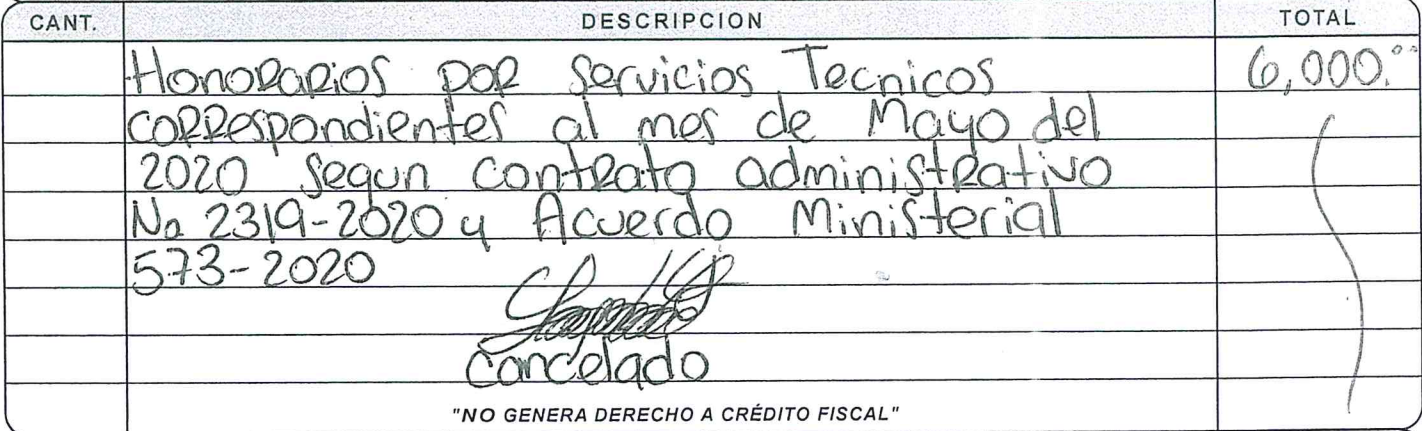 CANT. DESCRIPCION TOTAL
Honorarios por Servicios Tecnicos 6,000.00
correspondientes al mes de Mayo del
2020 Segun contrato administrativo
No 2319-2020 y Acuerdo Ministerial
573-2020
cancelado
"NO GENERA DERECHO A CRÉDITO FISCAL"